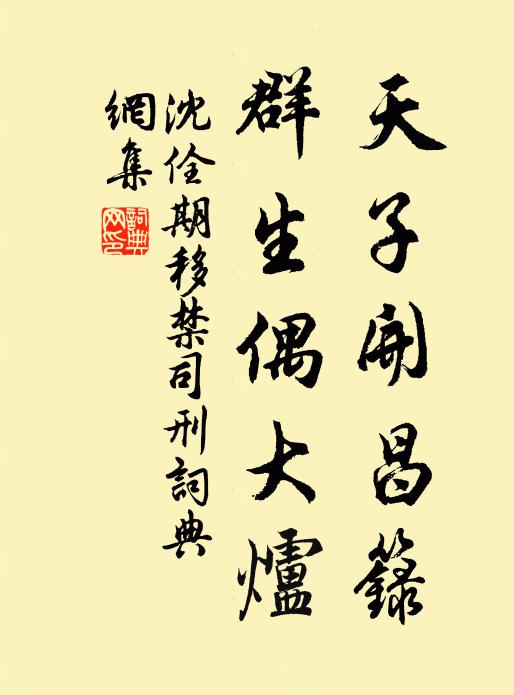 天子開昌籙
群生偶大爐
沈佺期移禁司刑詞典
網集
詞典網印